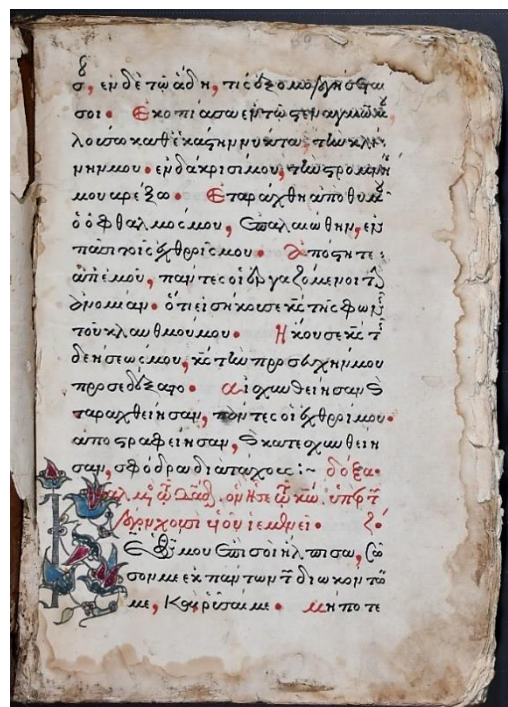 σ, ἐν δὲ τῷ ἅδῃ, τίς ἐξομολογήσεταί
σοι· Ἐκοπίασα ἐν τῷ στεναγμῷ μου,
λούσω καθ' ἑκάστην νύκτα τὴν κλί
νην μου· ἐν δάκρυσί μου, τὴν στρωμνήν
μου βρέξω· Ἐταράχθη ἀπὸ θυμοῦ
ὁ ὀφθαλμός μου, ἐπαλαιώθην, ἐν
πᾶσι τοῖς ἐχθροῖς μου· Ἀπόστητε
ἀπ' ἐμοῦ, πάντες οἱ ἐργαζόμενοι τὴν
ἀνομίαν· ὅτι εἰσήκουσε κς τῆς φωνῆς
τοῦ κλαυθμοῦ μου· Ἤκουσε κς τῆς
δεήσεώς μου, κς τὴν προσευχήν μου
προσεδέξατο· αἰσχυνθείησαν καὶ
ταραχθείησαν, πάντες οἱ ἐχθροί μου·
ἀποστραφείησαν, καὶ καταισχυνθείη
σαν, σφόδρα διὰ τάχους :~ δόξα·
ψαλμὸς τῷ Δαδ, ὃν ᾖσε τῷ κω ὑπὲρ τῶν
λόγων χουσὶ υἱοῦ ἰεμενεί· ζ·
Κε ὁ θς μου ἐπὶ σοὶ ἤλπισα, σῶ
σόν με ἐκ πάντων τῶν διωκόντων
με, καὶ ῥῦσαί με· μήποτε